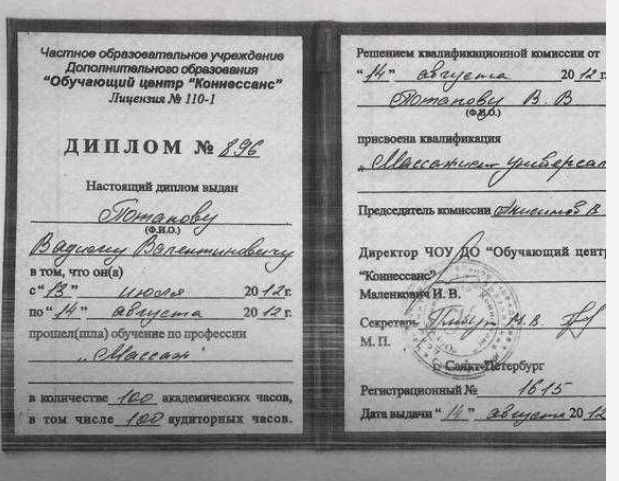 Частное образовательное учреждение
Дополнительного образования
"Обучающий центр "Коннессанс"
Лицензия № 110-1
ДИПЛОМ № 896
Настоящий диплом выдан
Потапову
(Ф.И.О.)
Вадиму Валентиновичу
в том, что он(а)
с "13" июля 2012 г.
по "14" августа 2012 г.
прошел(шла) обучение по профессии
"Массаж"
в количестве 100 академических часов,
в том числе 100 аудиторных часов.
Решением квалификационной комиссии от
"14" августа 2012 г.
Потапову В. В.
(Ф.И.О.)
присвоена квалификация
"Массажист универсал
Председатель комиссии Анисимов В
Директор ЧОУ ДО "Обучающий центр
"Коннессанс"
Маленкович И. В.
Секретарь М.В.
М. П.
Санкт-Петербург
Регистрационный № 1615
Дата выдачи "14" августа 2012